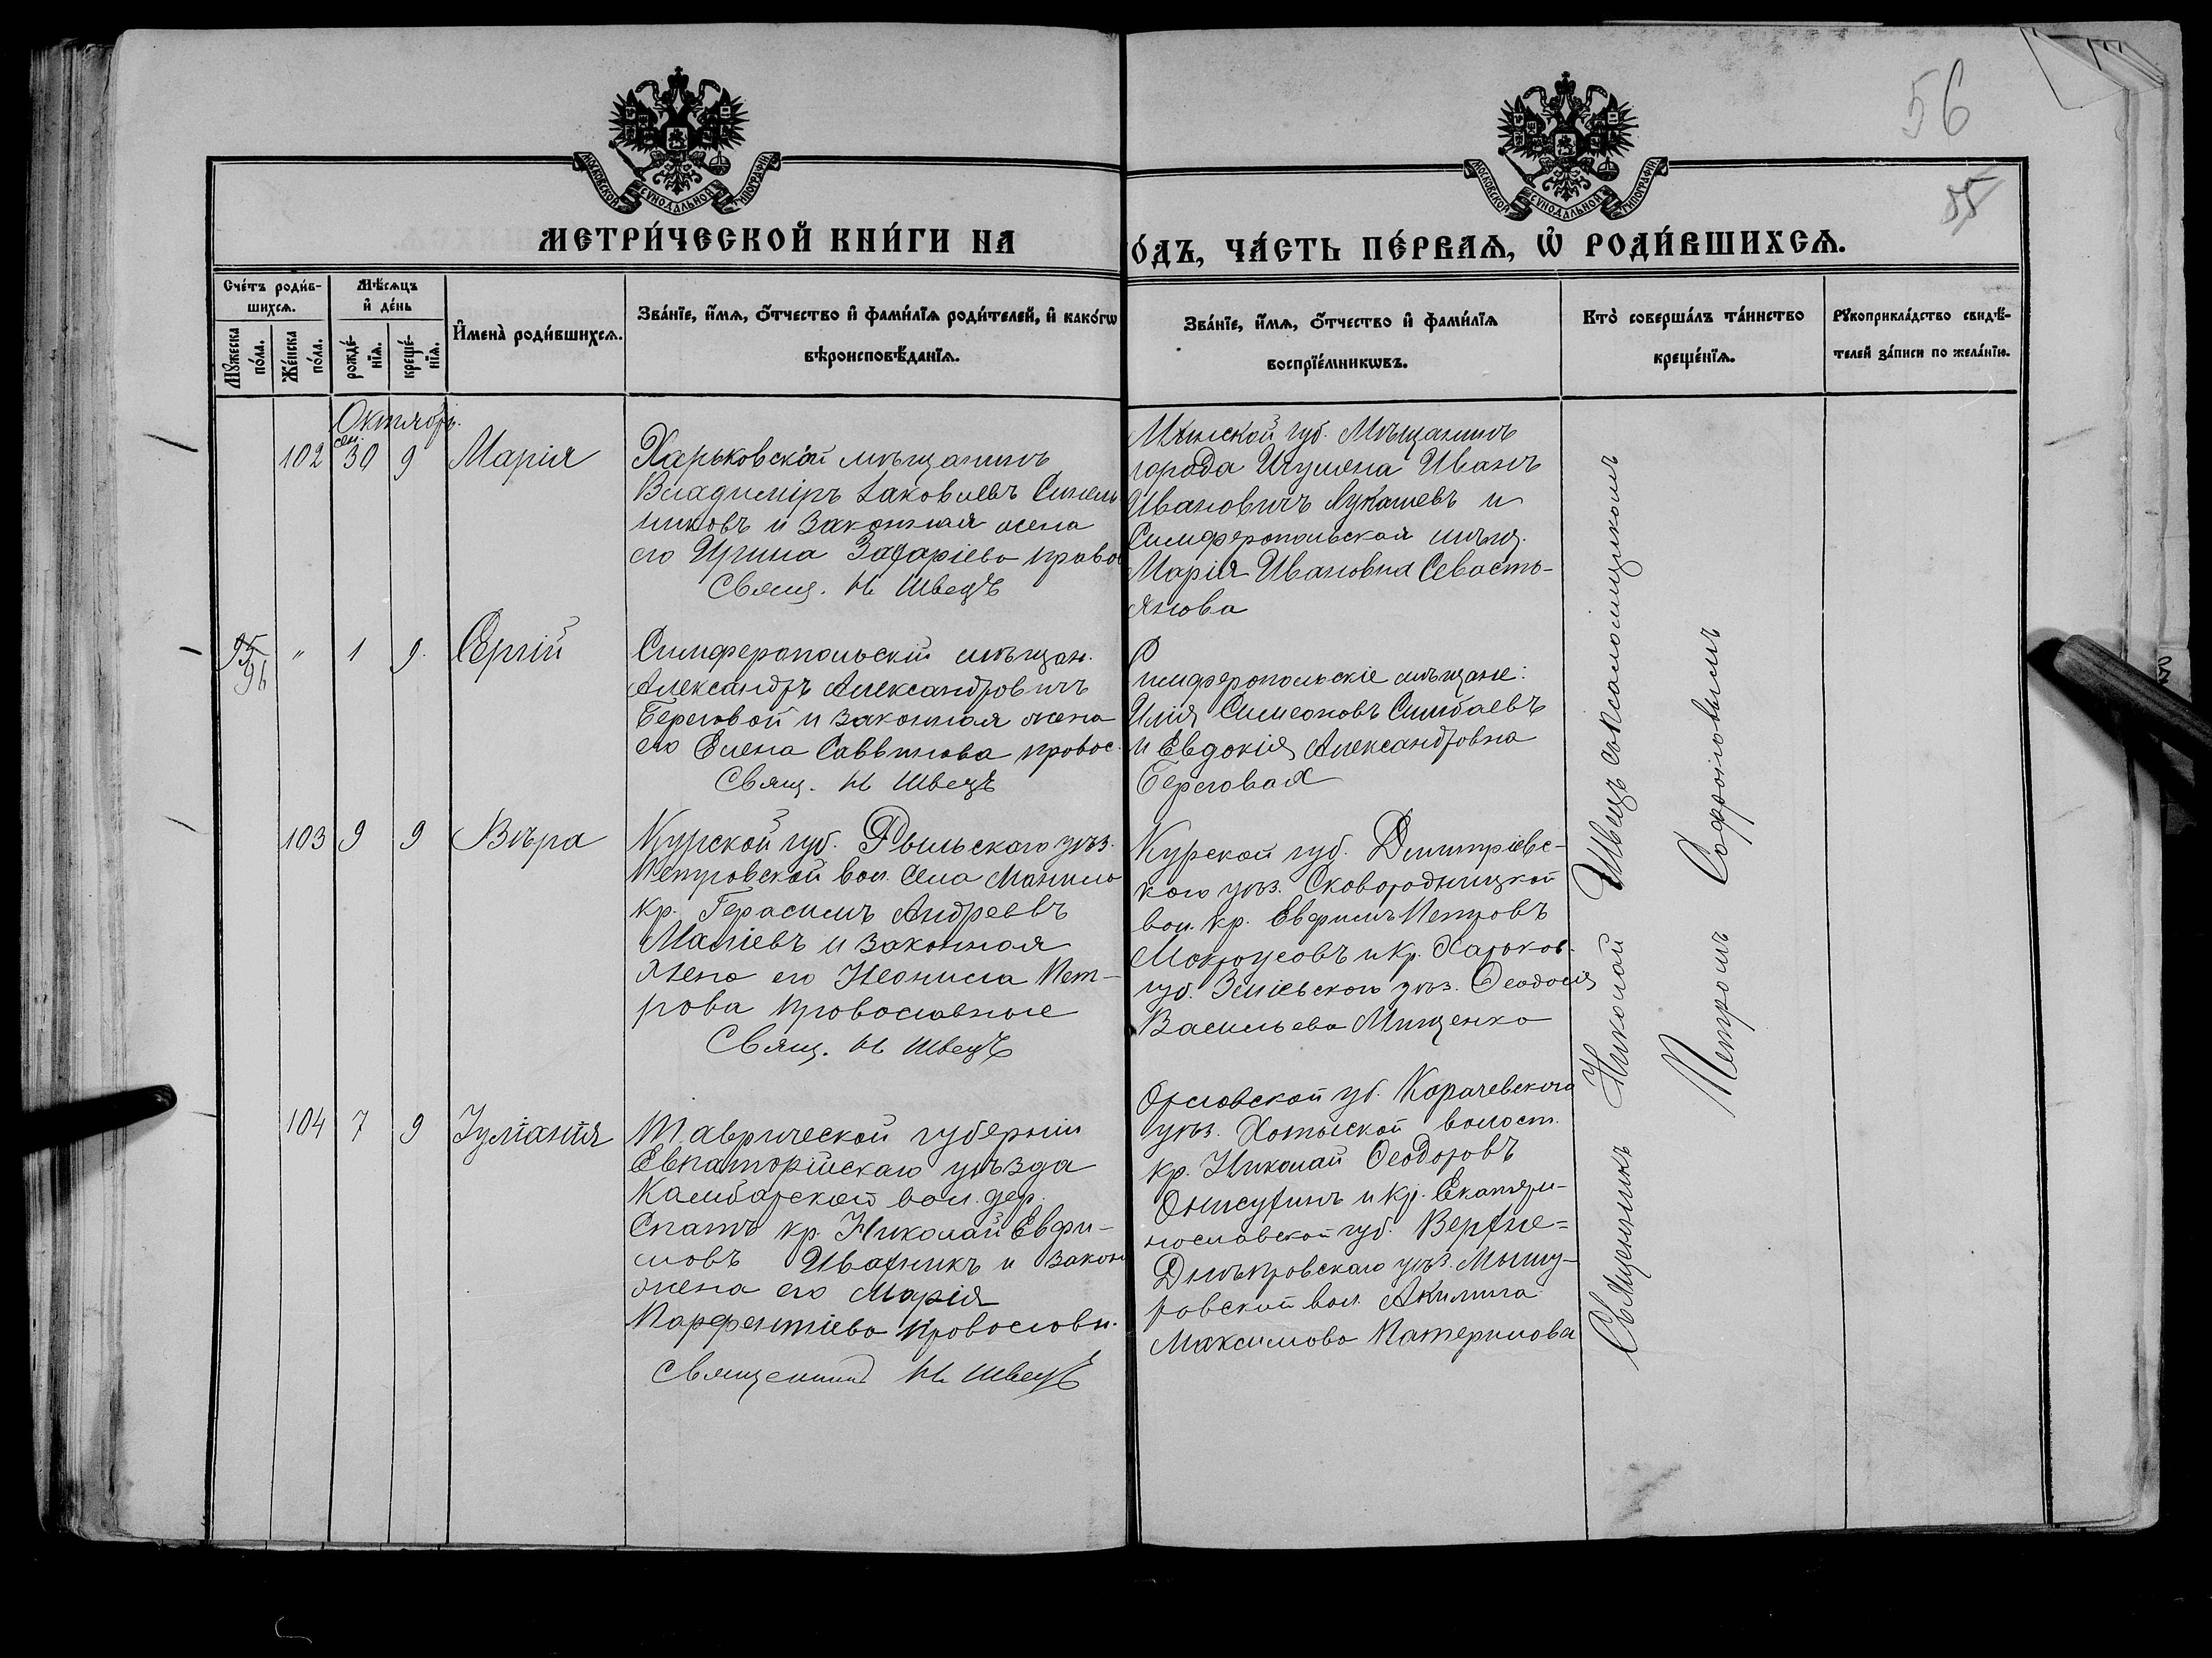 56
55
МОСКОВСКОЙ СѴНОДАЛЬНОЙ ТИПОГРАФІИ
МОСКОВСКОЙ СѴНОДАЛЬНОЙ ТИПОГРАФІИ
МЕТРИ́ЧЕСКОЙ КНИ́ГИ НА
О́ДЪ, ЧА́СТЬ ПЕ́РВАѦ, Ѡ҆ РОДИ́ВШИХСѦ.
Сче́тъ роди́в-
шихсѧ.
Мѹ́жеска по́ла.
Же́нска по́ла.
Мѣ́сѧцъ
и҆ де́нь
рожде́-
нїѧ.
креще́-
нїѧ.
И҆мена̀ роди́вшихсѧ.
Зва́нїе, и҆́мѧ, ѻ҆́тчество и҆ фами́лїѧ роди́телей, и҆ како́гѡ
вѣроисповѣ́данїѧ.
Зва́нїе, и҆́мѧ, ѻ҆́тчество и҆ фами́лїѧ
воспрїе́мникѡвъ.
Кто̀ соверша́лъ та́инство
креще́нїѧ.
Рꙋкоприкла́дство свидѣ́-
телей за́писи по жела́нїю.
Октябрь.
102 сен. 30 9 Марія
Харьковскій мѣщанинъ
Владиміръ Іаковлевъ Синель
никовъ и законная жена
его Ирина Захаріева право
Свящ. Н Швецъ
Минской губ. Мѣщанинъ
города Игумена Иванъ
Ивановичъ Лукашевъ и
Симферопольская мѣщ.
Марія Ивановна Севасть-
янова
95 96 " 1 9. Сергій
Симферопольскій мѣщан.
Александръ Александровичъ
Береговой и законная жена
его Елена Саввинова правос.
Свящ. Н Швецъ
Симферопольскіе мѣщане:
Илія Симеоновъ Симбаевъ
и Евдокія Александровна
Береговая
103 9 9 Вѣра
Курской губ. Рыльскаго уѣз.
Петровской вол. Села
кр. Герасимъ Андреевъ
и законная
жена его Неонила Пет-
рова православные
Свящ. Н Швецъ
Курской губ. Димитріевс-
каго уѣз. Сковородницкой
вол. кр. Евфимъ Петровъ
Мокроусовъ и кр. Харьков.
губ. Зміевскаго уѣз. Ѳеодосія
Васильева Мищенко
104 7 9 Іуліанія
Таврической губерніи
Евпаторійскаго уѣзда
Камбарской вол. дер.
Спатъ кр. Николай Евфи-
мовъ Ивахникъ и закон
жена его Марія
Парфентіева православн.
Священникъ Н Швецъ
Орловской губ. Корачевскаго
уѣз. волост.
кр. Николай Ѳеодоровъ
Онисухинъ и кр. Екатери-
нославской губ. Верхне-
Днѣпровскаго уѣз. Мишу-
ровской вол. Акилина
Максимова Катеринова
Священникъ Николай Швецъ съ псаломщикомъ
Петромъ Софроновымъ